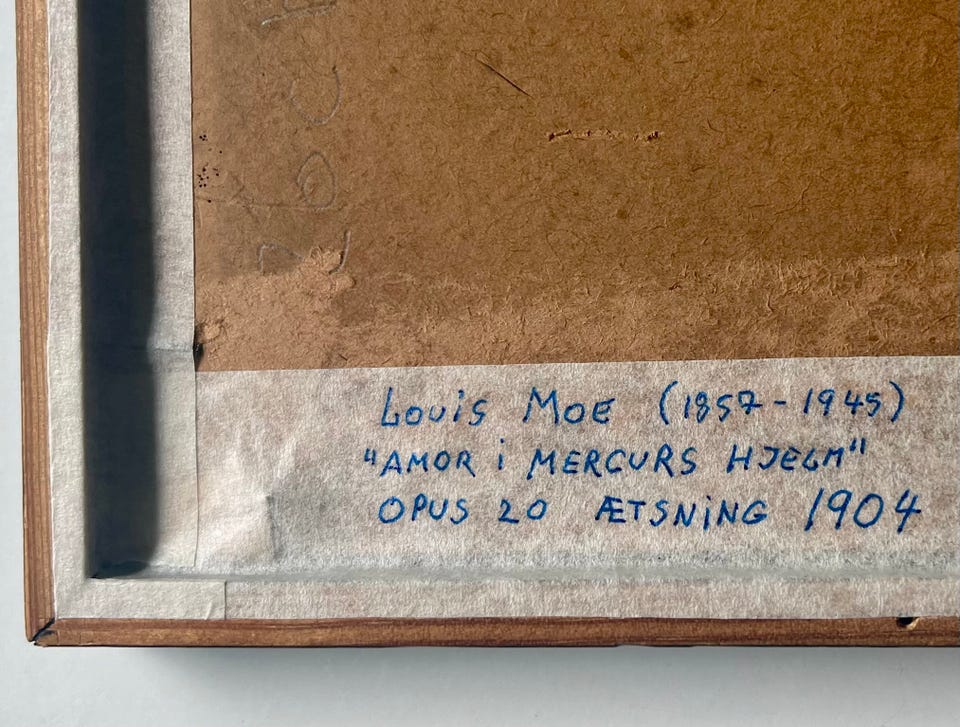 Louis Moe (1857-1945)
"AMOR i MERCURS HJELM"
OPUS 20 ÆTSNiNG 1904